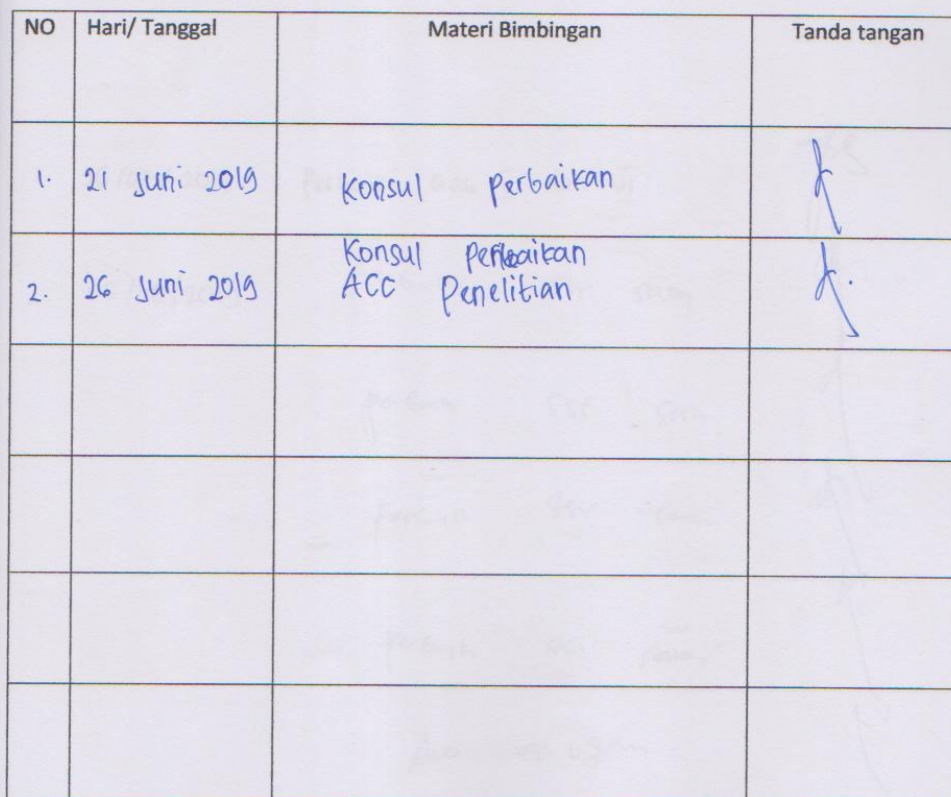 NO Hari/ Tanggal Materi Bimbingan Tanda tangan
1. 21 Juni 2019 Konsul Perbaikan
2. 26 Juni 2019 Konsul Perbaikan
ACC Penelitian